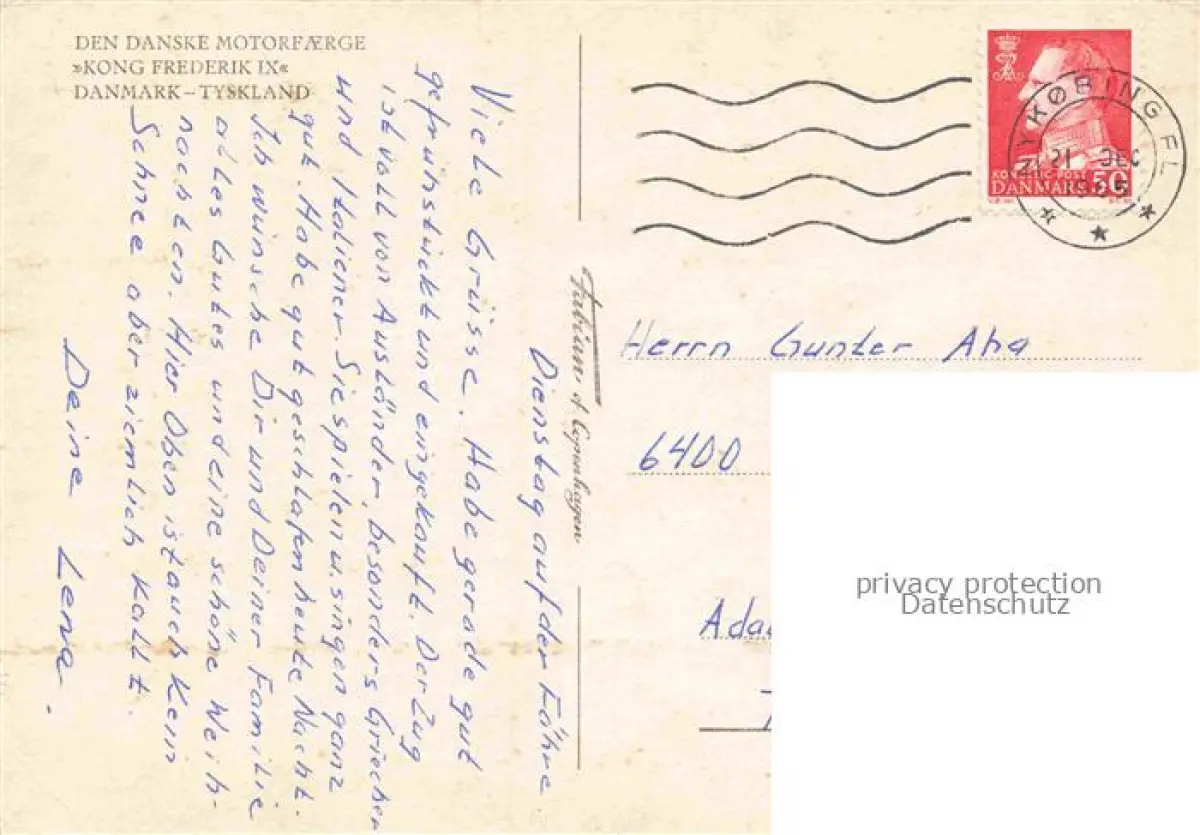 DEN DANSKE MOTORFÆRGE
»KONG FREDERIK IX«
DANMARK – TYSKLAND
Dienstag auf der Fähre
Viele Grüsse. Habe gerade gut
gefrühstückt und eingekauft. Der Zug
ist voll von Ausländer, besonders Griechen
und Italiener. Sie spielen u. singen ganz
gut. Habe gut geschlafen heute Nacht.
Ich wünsche Dir und Deiner Familie
alles Gutes und eine schöne Weih-
nachten. Hier Oben ist auch Kein
Schnee aber ziemlich Kallt.
Deine Lena.
Fabian, of Copenhagen
NYKØBING FL.
21 DEC
DANMARK 50
Herrn Gunter Aha
6400
Ada
privacy protection
Datenschutz